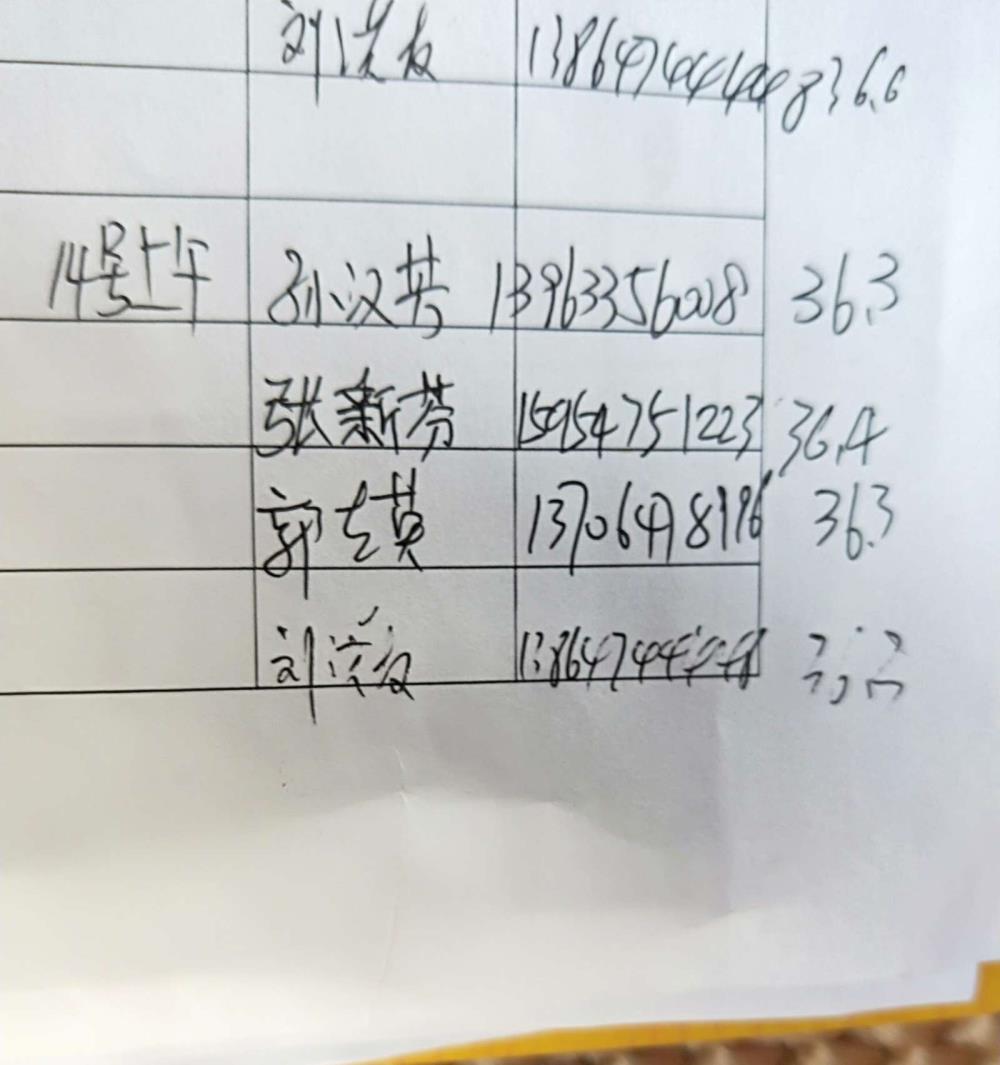 刘洪友 13864744448 36.6
14号上午 孙汉芳 13963356008 36.3
张新芬 15954751223 36.4
郭志英 13706478196 36.3
刘洪友 13864744448